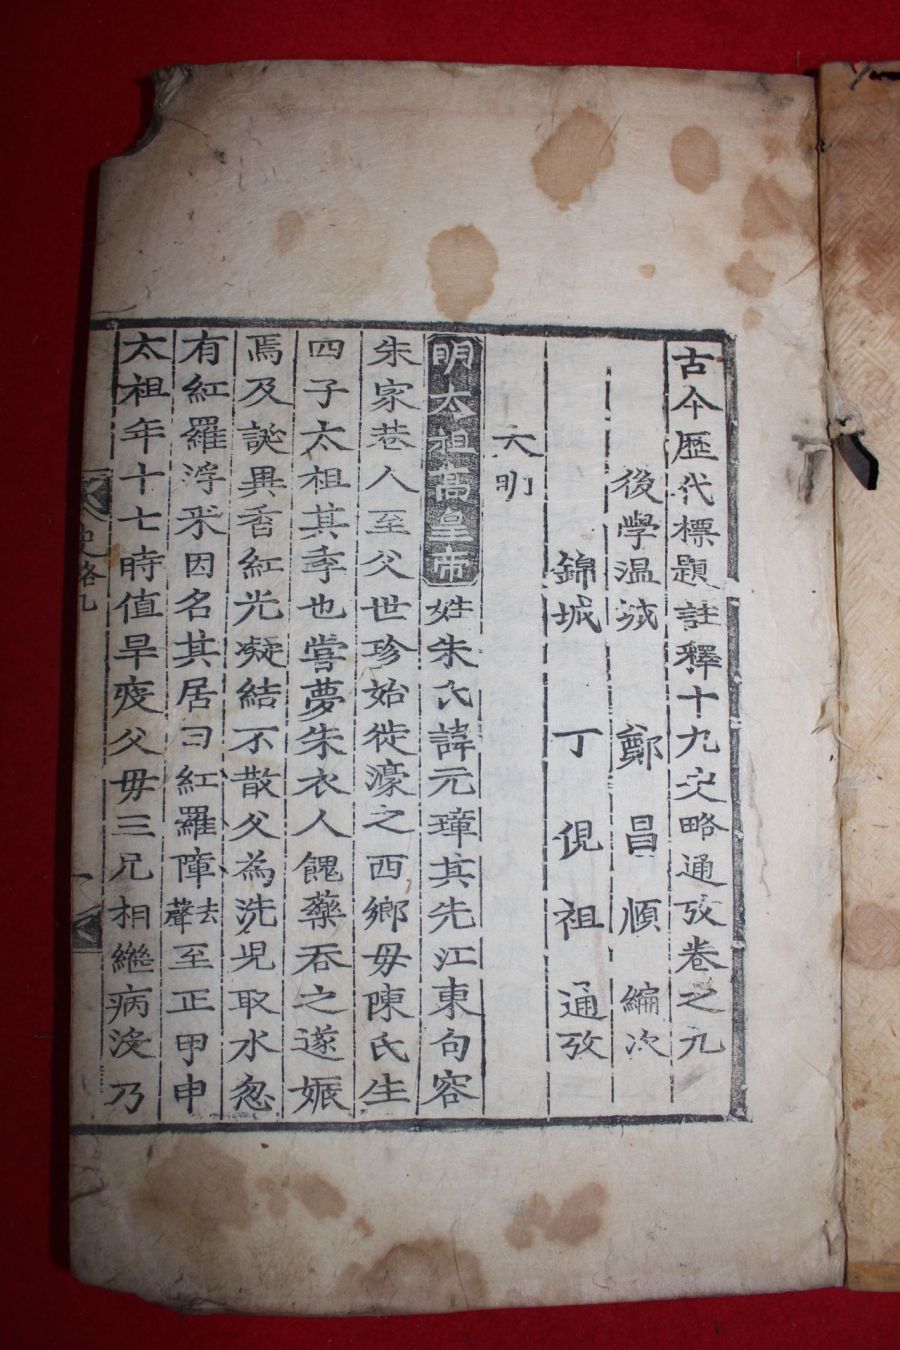 古今歷代標題註釋十九史略通攷卷之九
後學溫城 鄭昌順 編次
錦城 丁俔祖 通攷
大明
明太祖高皇帝姓朱氏諱元璋其先江東句容
朱家巷人至父世珍始徙濠之西鄉毋陳氏生
四子太祖其季也嘗夢朱衣人餽藥吞之遂娠
焉及誕異香紅光凝結不散父為洗児取水忽
有紅羅浮来因名其居曰紅羅障去聲至正甲申
太祖年十七時值旱疫父毋三兄相繼病沒乃
史略九
一